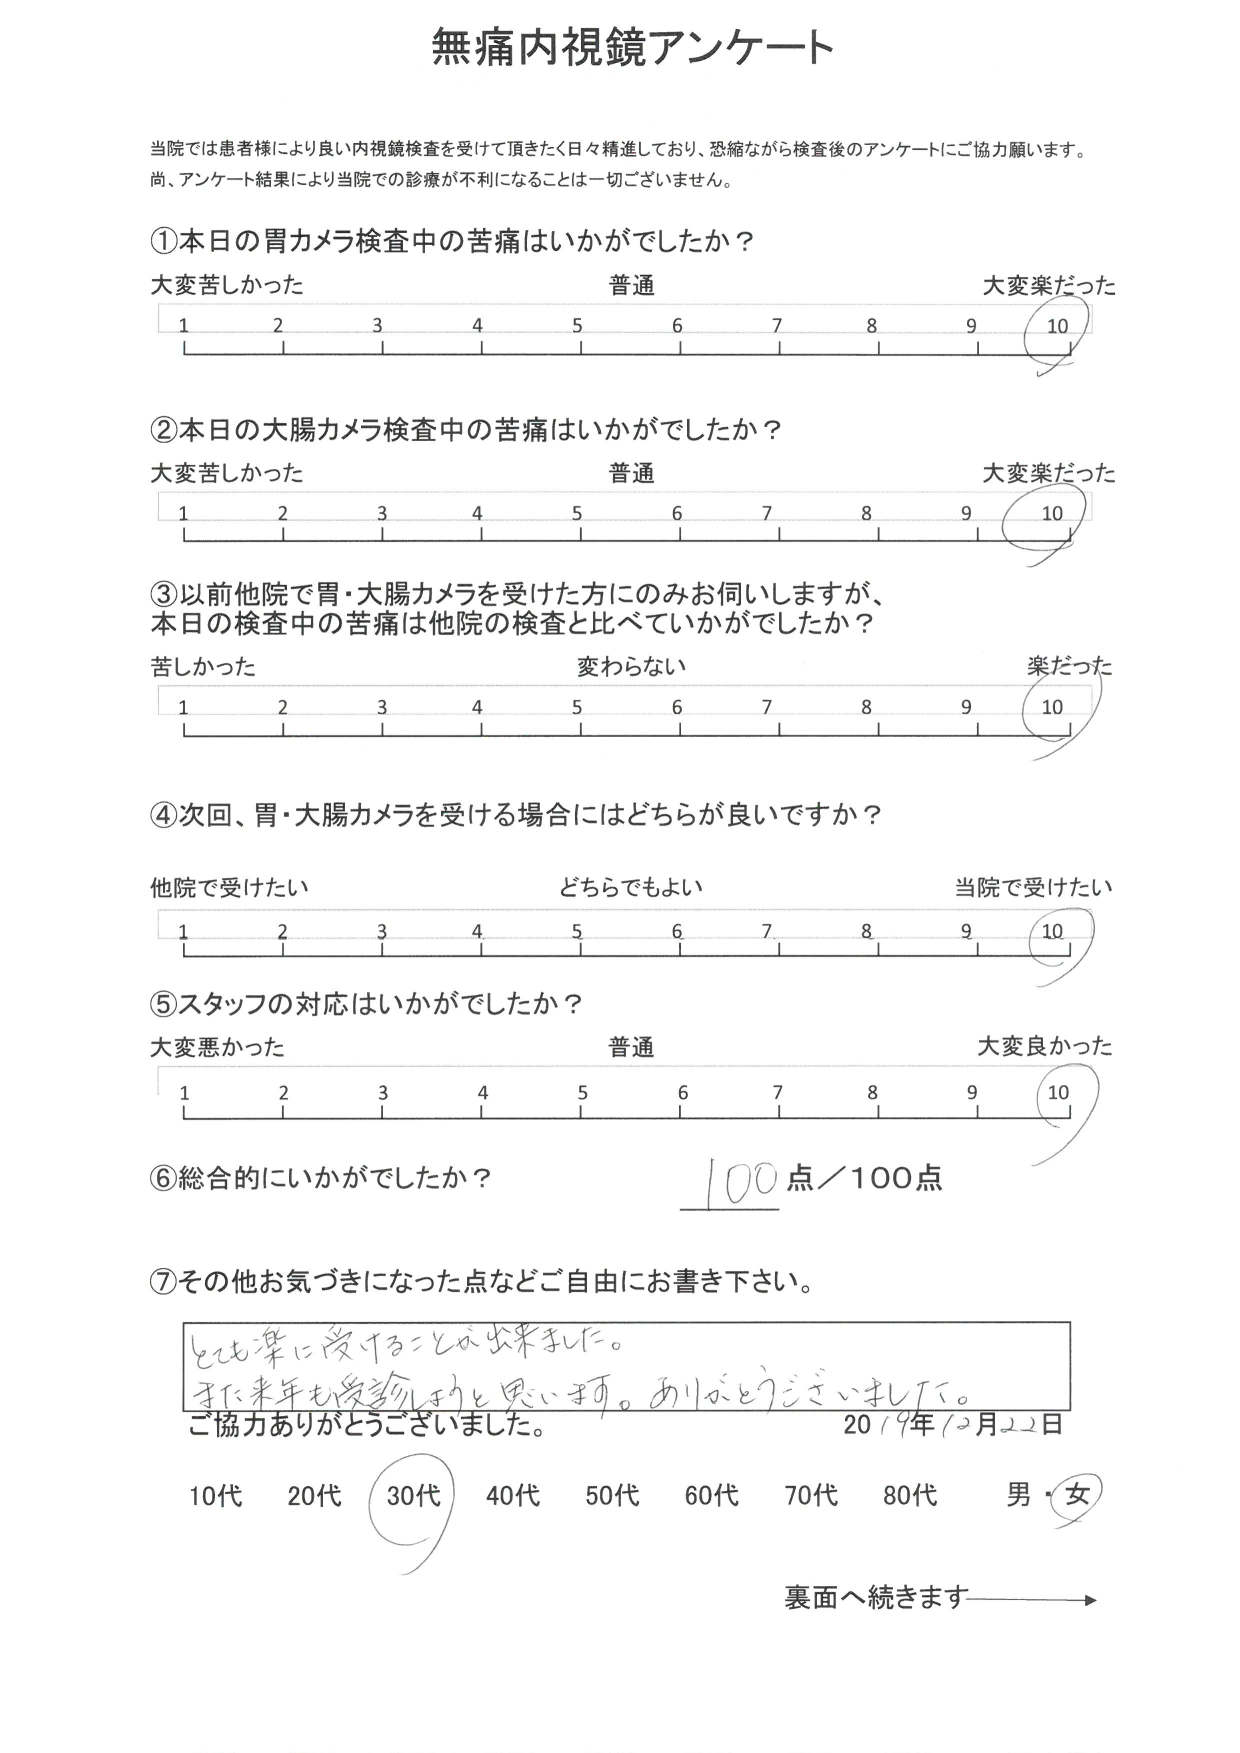 無痛内視鏡アンケート
当院では患者様により良い内視鏡検査を受けて頂きたく日々精進しており、恐縮ながら検査後のアンケートにご協力願います。
尚、アンケート結果により当院での診療が不利になることは一切ございません。
①本日の胃カメラ検査中の苦痛はいかがでしたか？
大変苦しかった 普通 大変楽だった
1 2 3 4 5 6 7 8 9 10
②本日の大腸カメラ検査中の苦痛はいかがでしたか？
大変苦しかった 普通 大変楽だった
1 2 3 4 5 6 7 8 9 10
③以前他院で胃・大腸カメラを受けた方にのみお伺いしますが、
本日の検査中の苦痛は他院の検査と比べていかがでしたか？
苦しかった 変わらない 楽だった
1 2 3 4 5 6 7 8 9 10
④次回、胃・大腸カメラを受ける場合にはどちらが良いですか？
他院で受けたい どちらでもよい 当院で受けたい
1 2 3 4 5 6 7 8 9 10
⑤スタッフの対応はいかがでしたか？
大変悪かった 普通 大変良かった
1 2 3 4 5 6 7 8 9 10
⑥総合的にいかがでしたか？ 100点／100点
⑦その他お気づきになった点などご自由にお書き下さい。
とても楽に受けることが出来ました。
また来年も受診しようと思います。ありがとうございました。
ご協力ありがとうございました。 2019年12月22日
10代 20代 30代 40代 50代 60代 70代 80代 男・女
裏面へ続きます